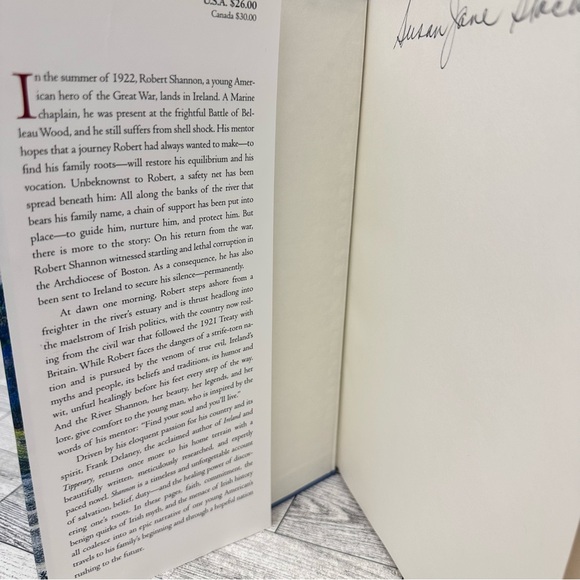 U.S.A. $26.00
Canada $30.00
In the summer of 1922, Robert Shannon, a young Amer-
ican hero of the Great War, lands in Ireland. A Marine
chaplain, he was present at the frightful Battle of Bel-
leau Wood, and he still suffers from shell shock. His mentor
hopes that a journey Robert had always wanted to make—to
find his family roots—will restore his equilibrium and his
vocation. Unbeknownst to Robert, a safety net has been
spread beneath him: All along the banks of the river that
bears his family name, a chain of support has been put into
place—to guide him, nurture him, and protect him. But
there is more to the story: On his return from the war,
Robert Shannon witnessed startling and lethal corruption in
the Archdiocese of Boston. As a consequence, he has also
been sent to Ireland to secure his silence—permanently.
At dawn one morning, Robert steps ashore from a
freighter in the river's estuary and is thrust headlong into
the maelstrom of Irish politics, with the country now roil-
ing from the civil war that followed the 1921 Treaty with
Britain. While Robert faces the dangers of a strife-torn na-
tion and is pursued by the venom of true evil, Ireland's
myths and people, its beliefs and traditions, its humor and
wit, unfurl healingly before his feet every step of the way.
And the River Shannon, her beauty, her legends, and her
lore, give comfort to the young man, who is inspired by the
words of his mentor: "Find your soul and you'll live."
Driven by his eloquent passion for his country and its
spirit, Frank Delaney, the acclaimed author of Ireland and
Tipperary, returns once more to his home terrain with a
beautifully written, meticulously researched, and expertly
paced novel. Shannon is a timeless and unforgettable account
of salvation, belief, duty—and the healing power of discov-
ering one's roots. In these pages, faith, commitment, the
benign quirks of Irish myth, and the menace of Irish history
all coalesce into an epic narrative of one young American's
travels to his family's beginning and through a hopeful nation
rushing to the future.
Susan Jane